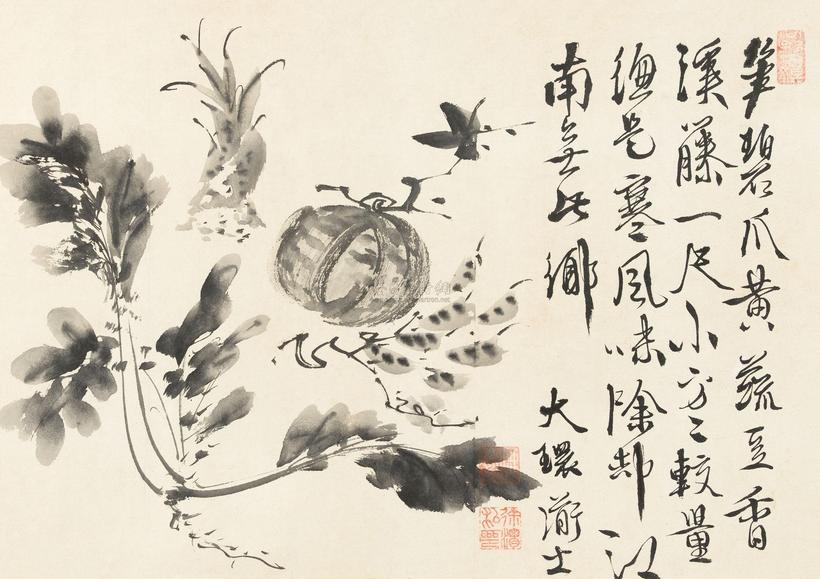 笋碧瓜黄蔬豆香
溪藤一尺小方々較量
緫是寒風味除却江
南無此鄉
大環士